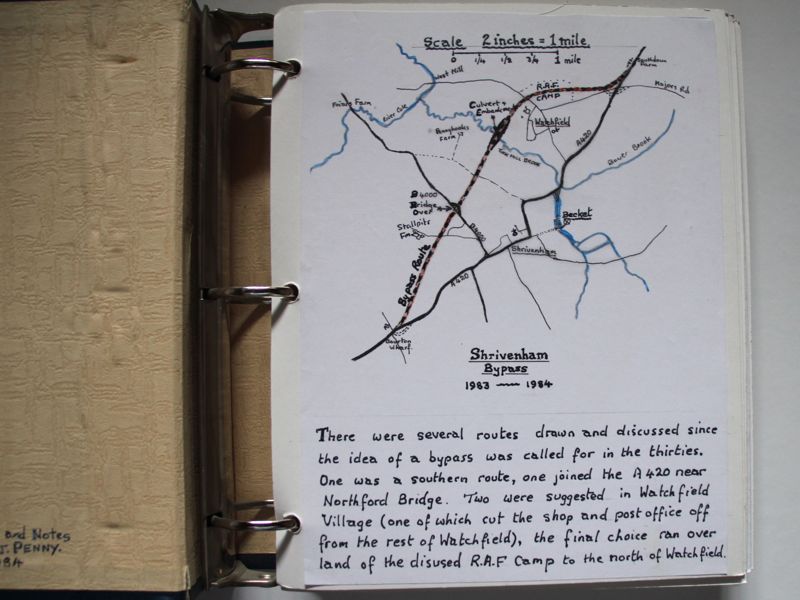 Scale 2 inches = 1 mile.
0 1/4 1/2 3/4 1 mile
West Mill
River Cole
Friars Farm
R.A.F
CAMP
Majors Rd
Culvert +
Embankment
Watchfield
Pennyhooks
Farm
TUCKMILL BROOK
A420
Bower Brook
B4000
Bridge
Over
Stallpits
Fm
B4000
Becket
Shrivenham
Bypass Route
A420
Bourton
Wharf.
Shrivenham
Bypass
1983 — 1984
There were several routes drawn and discussed since
the idea of a bypass was called for in the thirties.
One was a southern route, one joined the A420 near
Northford Bridge. Two were suggested in Watchfield
Village (one of which cut the shop and post office off
from the rest of Watchfield), the final choice ran over
land of the disused R.A.F Camp to the north of Watchfield.
and Notes
J. PENNY.